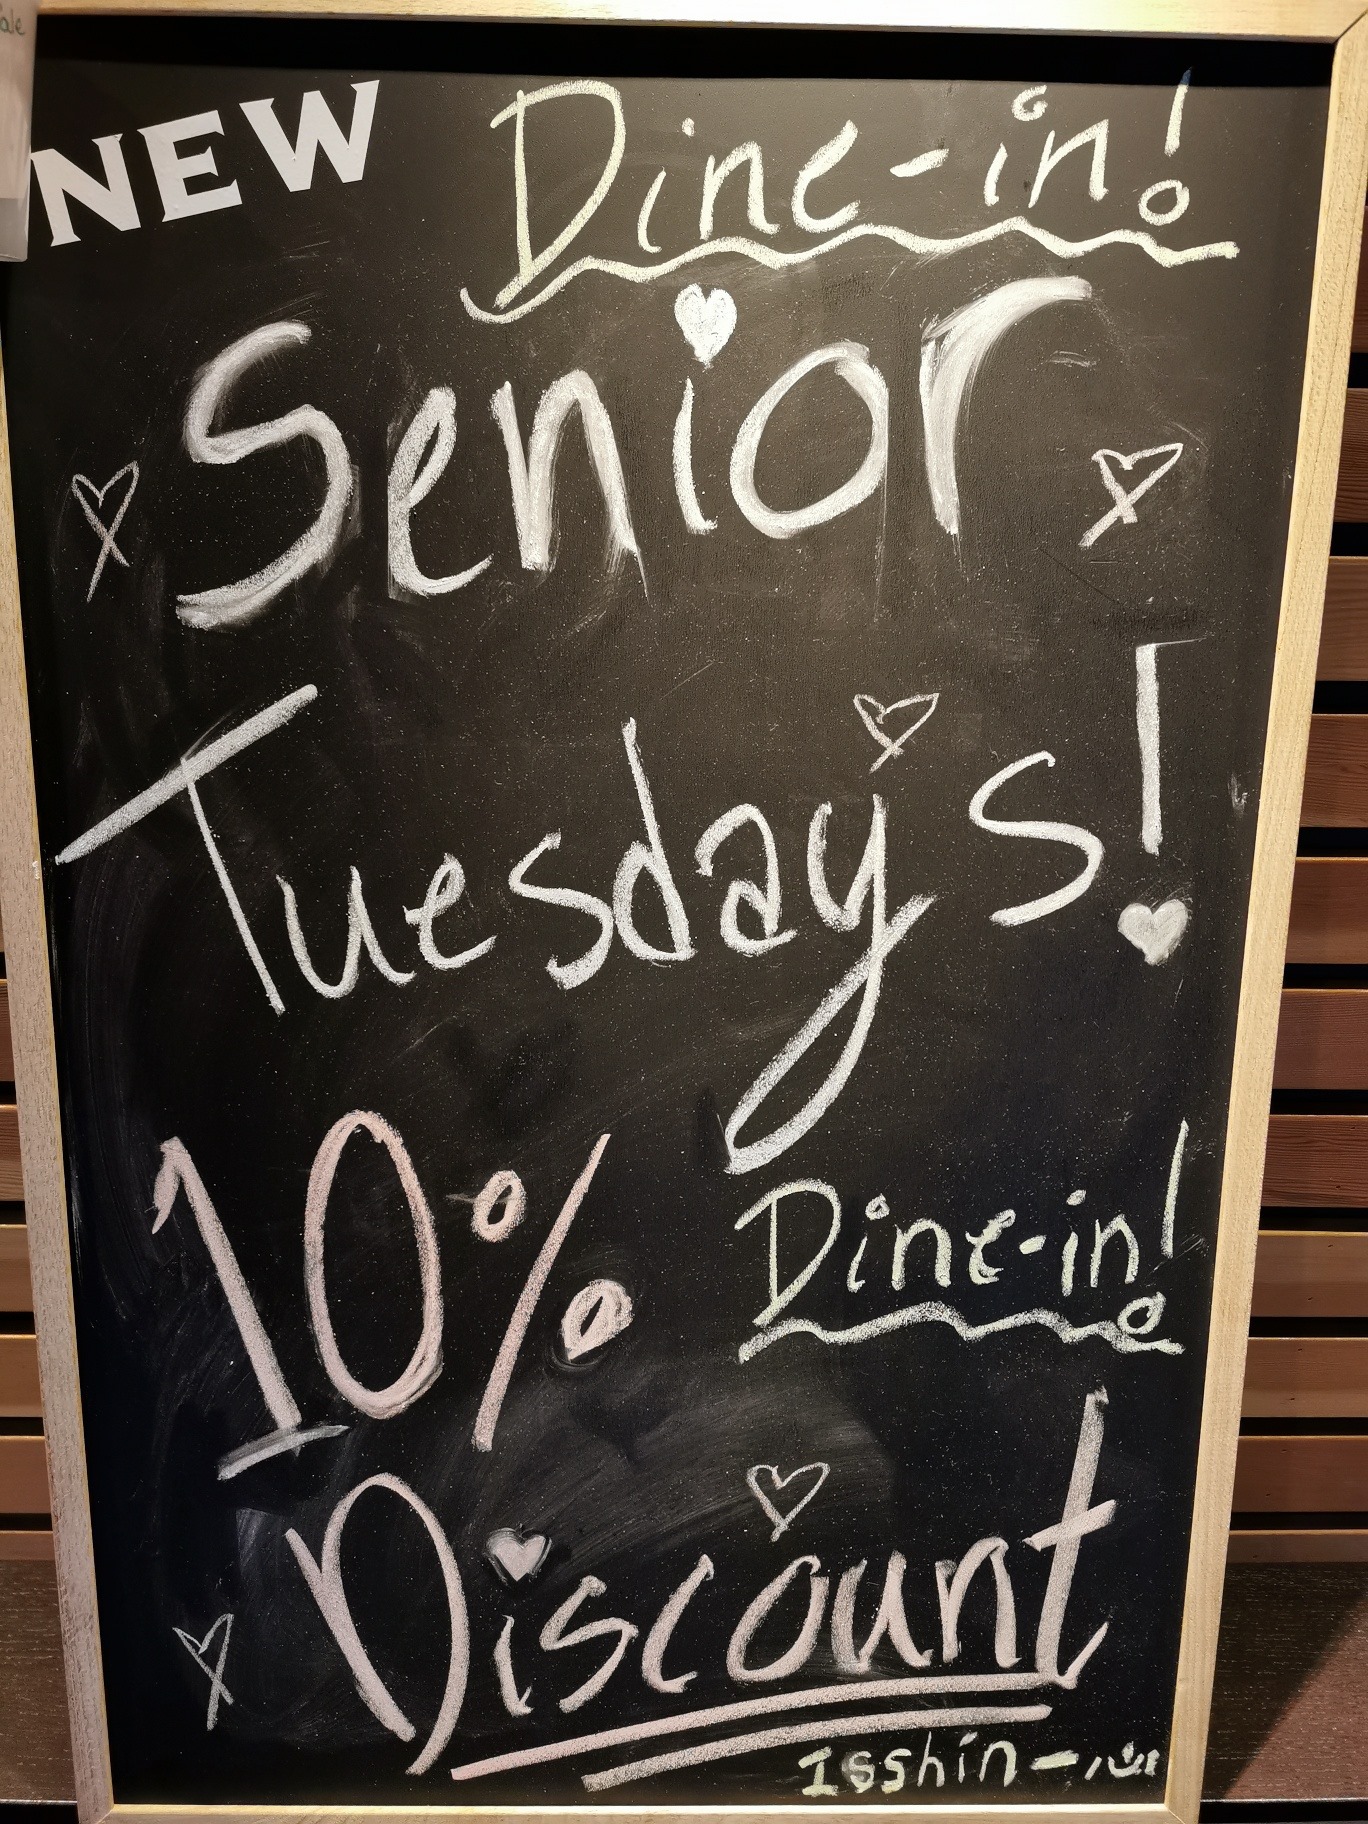 NEW Dine-in!
Senior
Tuesday's!
10% Dine-in!
Discount
Isshin -